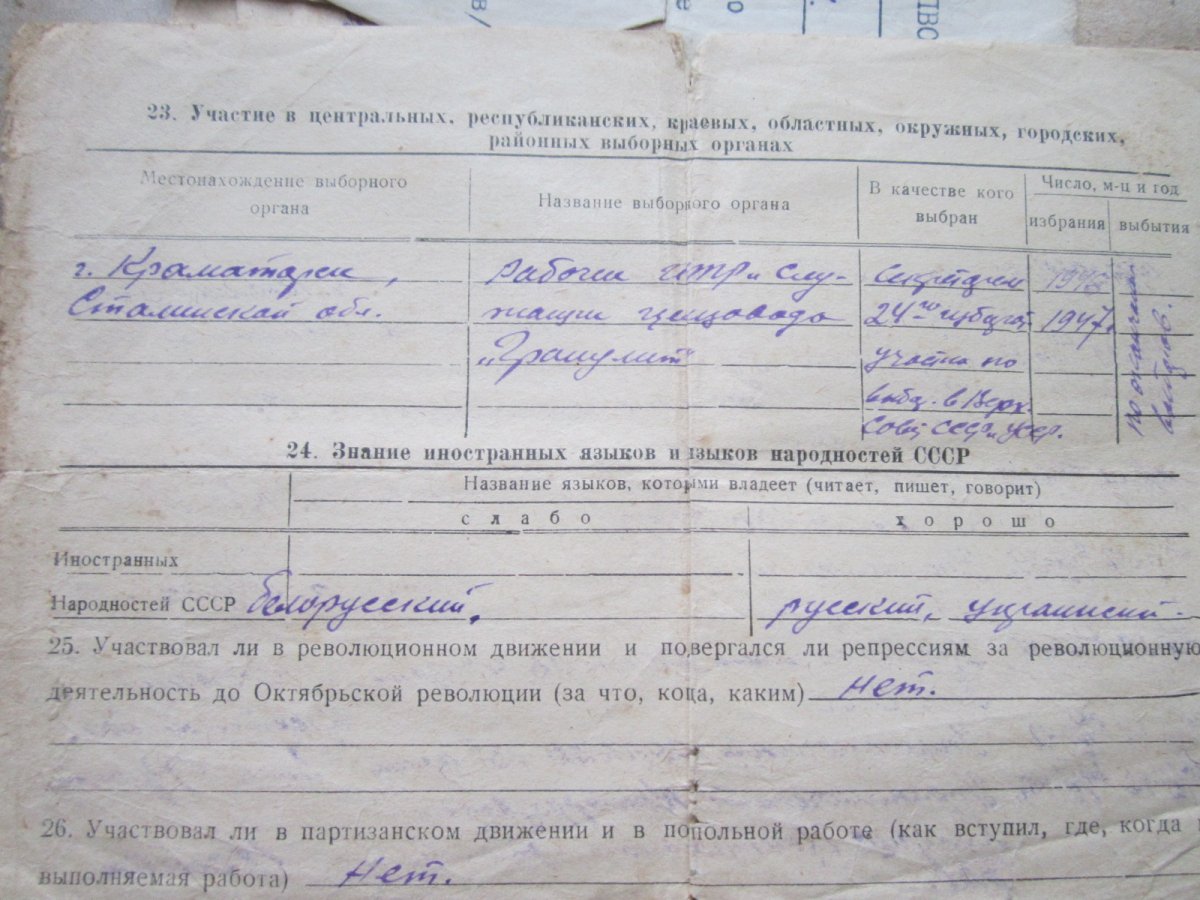 ПВС
23. Участие в центральных, республиканских, краевых, областных, окружных, городских,
районных выборных органах
Местонахождение выборного
органа
Название выборного органа
В качестве кого
выбран
Число, м-ц и год
избрания
выбытия
г. Краматорск,
Сталинской обл.
Рабочие ИТР и слу-
жащие
секретарем
24го
1947г.
участка по
выбо. в Верх.
Совет СССР и УССР.
24. Знание иностранных языков и языков народностей СССР
Название языков, которыми владеет (читает, пишет, говорит)
слабо
хорошо
Иностранных
Народностей СССР белорусский, русский, украинский
25. Участвовал ли в революционном движении и повергался ли репрессиям за революционную
деятельность до Октябрьской революции (за что, когда, каким) Нет.
26. Участвовал ли в партизанском движении и в попольной работе (как вступил, где, когда
выполняемая работа) Нет.